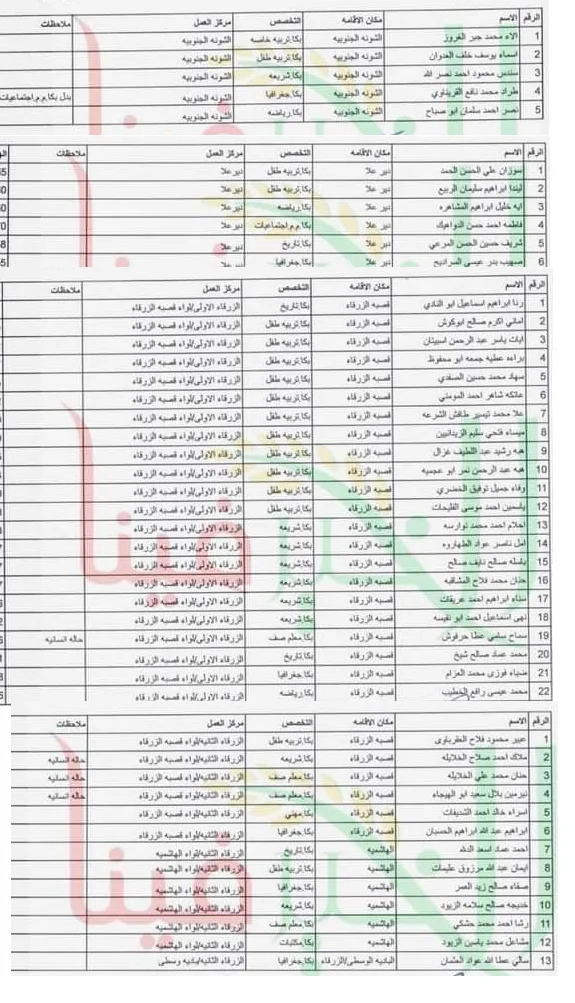 الرقم الاسم مكان الاقامه التخصص مركز العمل ملاحظات
1 الاء محمد جبر الغروز الشونه الجنوبيه بكا.تربيه خاصه الشونه الجنوبيه
2 اسماء يوسف خلف العدوان الشونه الجنوبيه بكا.تربيه طفل الشونه الجنوبيه
3 سندس محمود احمد نصر الله الشونه الجنوبيه بكا.شريعه الشونه الجنوبيه
4 طراد محمد نافع القريناوي الشونه الجنوبيه بكا.جغرافيا الشونه الجنوبيه بدل بكا.م.م.اجتماعيات
5 نصر احمد سلمان ابو صباح الشونه الجنوبيه بكا.رياضه الشونه الجنوبيه
الرقم الاسم مكان الاقامه التخصص مركز العمل ملاحظات
1 سوزان علي الحسن الحمد دير علا بكا.تربيه طفل ديرعلا
2 ليندا ابراهيم سليمان الربيع دير علا بكا.تربيه طفل ديرعلا
3 ايه خليل ابراهيم المشاهره دير علا بكا.رياضه ديرعلا
4 فاطمه احمد حسن الدواهيك دير علا بكا.م.م.اجتماعيات ديرعلا
5 شريف حسين الحسن المرعي دير علا بكا.تاريخ ديرعلا
6 صهيب بدر عيسى المراديح دير علا بكا.جغرافيا ديرعلا
الرقم الاسم مكان الاقامه التخصص مركز العمل ملاحظات
1 رنا ابراهيم اسماعيل ابو النادي قصبه الزرقاء بكا.تاريخ الزرقاء الاولى/لواء قصبه الزرقاء
2 اماني اكرم صالح ابوكوش قصبه الزرقاء بكا.تربيه طفل الزرقاء الاولى/لواء قصبه الزرقاء
3 ايات ياسر عبد الرحمن اسبيتان قصبه الزرقاء بكا.تربيه طفل الزرقاء الاولى/لواء قصبه الزرقاء
4 براءه عطيه جمعه ابو محفوظ قصبه الزرقاء بكا.تربيه طفل الزرقاء الاولى/لواء قصبه الزرقاء
5 سهاد محمد حسين الصفدي قصبه الزرقاء بكا.تربيه طفل الزرقاء الاولى/لواء قصبه الزرقاء
6 عاتكه شاهر احمد المومني قصبه الزرقاء بكا.تربيه طفل الزرقاء الاولى/لواء قصبه الزرقاء
7 علا محمد تيسير طافش الشرعه قصبه الزرقاء بكا.تربيه طفل الزرقاء الاولى/لواء قصبه الزرقاء
8 ميساء فتحي سليم الزيدانيين قصبه الزرقاء بكا.تربيه طفل الزرقاء الاولى/لواء قصبه الزرقاء
9 هبه رشيد عبد اللطيف غزال قصبه الزرقاء بكا.تربيه طفل الزرقاء الاولى/لواء قصبه الزرقاء
10 هبه عبد الرحمن نمر ابو عجميه قصبه الزرقاء بكا.تربيه طفل الزرقاء الاولى/لواء قصبه الزرقاء
11 وفاء جميل توفيق الخضري قصبه الزرقاء بكا.تربيه طفل الزرقاء الاولى/لواء قصبه الزرقاء
12 ياسمين احمد موسى الفليحات قصبه الزرقاء بكا.تربيه طفل الزرقاء الاولى/لواء قصبه الزرقاء
13 احلام احمد محمد نوارسه قصبه الزرقاء بكا.شريعه الزرقاء الاولى/لواء قصبه الزرقاء
14 امل ناصر عواد الطهاروه قصبه الزرقاء بكا.شريعه الزرقاء الاولى/لواء قصبه الزرقاء
15 باسله صالح نايف صالح قصبه الزرقاء بكا.شريعه الزرقاء الاولى/لواء قصبه الزرقاء
16 حنان محمد فلاح المشاقبه قصبه الزرقاء بكا.شريعه الزرقاء الاولى/لواء قصبه الزرقاء
17 سناء ابراهيم احمد عريقات قصبه الزرقاء بكا.شريعه الزرقاء الاولى/لواء قصبه الزرقاء
18 نهى اسماعيل احمد ابو نفيسه قصبه الزرقاء بكا.شريعه الزرقاء الاولى/لواء قصبه الزرقاء
19 سماح سامي عطا حرفوش قصبه الزرقاء بكا.معلم صف الزرقاء الاولى/لواء قصبه الزرقاء حاله انسانيه
20 محمد عماد صالح شيخ قصبه الزرقاء بكا.تاريخ الزرقاء الاولى/لواء قصبه الزرقاء
21 ضياء فوزي محمد العزام قصبه الزرقاء بكا.جغرافيا الزرقاء الاولى/لواء قصبه الزرقاء
22 محمد عيسى رافع الخطيب قصبه الزرقاء بكا.رياضه الزرقاء الاولى/لواء قصبه الزرقاء
الرقم الاسم مكان الاقامه التخصص مركز العمل ملاحظات
1 عبير محمود فلاح العقرباوى قصبه الزرقاء بكا.تربيه طفل الزرقاء الثانيه/لواء قصبه الزرقاء
2 ملاك احمد صلاح الخلايله قصبه الزرقاء بكا.شريعه الزرقاء الثانيه/لواء قصبه الزرقاء حاله انسانيه
3 حنان محمد علي الخلايله قصبه الزرقاء بكا.معلم صف الزرقاء الثانيه/لواء قصبه الزرقاء حاله انسانيه
4 نيرمين بلال سعيد ابو الهيجاء قصبه الزرقاء بكا.معلم صف الزرقاء الثانيه/لواء قصبه الزرقاء حاله انسانيه
5 اسراء خالد احمد الشديفات قصبه الزرقاء بكا.مهني الزرقاء الثانيه/لواء قصبه الزرقاء
6 ابراهيم عبد الله ابراهيم الحسبان قصبه الزرقاء بكا.جغرافيا الزرقاء الثانيه/لواء قصبه الزرقاء
7 احمد عماد اسعد الهاشميه بكا.تاريخ الزرقاء الثانيه/لواء الهاشميه
8 ايمان عبد الله مرزوق عليمات الهاشميه بكا.تربيه طفل الزرقاء الثانيه/لواء الهاشميه
9 صفاء صالح زيد العمر الهاشميه بكا.جغرافيا الزرقاء الثانيه/لواء الهاشميه
10 خديجه صالح سلامه الزيود الهاشميه بكا.شريعه الزرقاء الثانيه/لواء الهاشميه
11 رشا احمد محمد حشكي الهاشميه بكا.معلم صف الزرقاء الثانيه/لواء الهاشميه
12 مشاعل محمد ياسين الزيود الهاشميه بكا.مكتبات الزرقاء الثانيه/لواء الهاشميه
13 سالي عطا الله عواد العثمان الباديه الوسطى/الزرقاء بكا.جغرافيا الزرقاء الثانيه/باديه وسطى